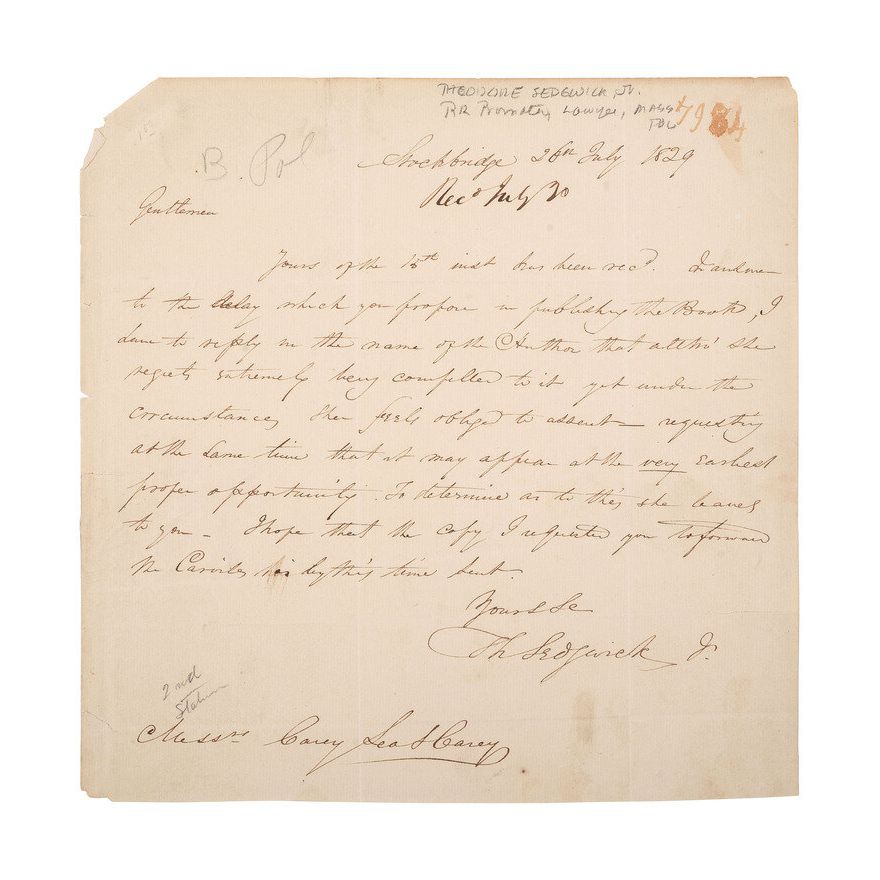 THEODORE SEDGWICK Jr.
RR Promoter, Lawyer, MASS
POL
7984
B. Pol
Stockbridge 26th July 1829
Recd July 30
Gentlemen
Yours of the 15th inst has been recd. In answer
to the delay which you propose in publishing the Book, I
have to reply in the name of the Author that altho' she
regrets extremely being compelled to it yet under the
circumstances she feels obliged to assent – requesting
at the same time that it may appear at the very earliest
proper opportunity. To determine as to this she leaves
to you – I hope that the copy I requested you to forward
the Carvills has by this time been sent.
Yours &c
Th Sedgwick Jr.
2nd
Messrs Carey Lea & Carey